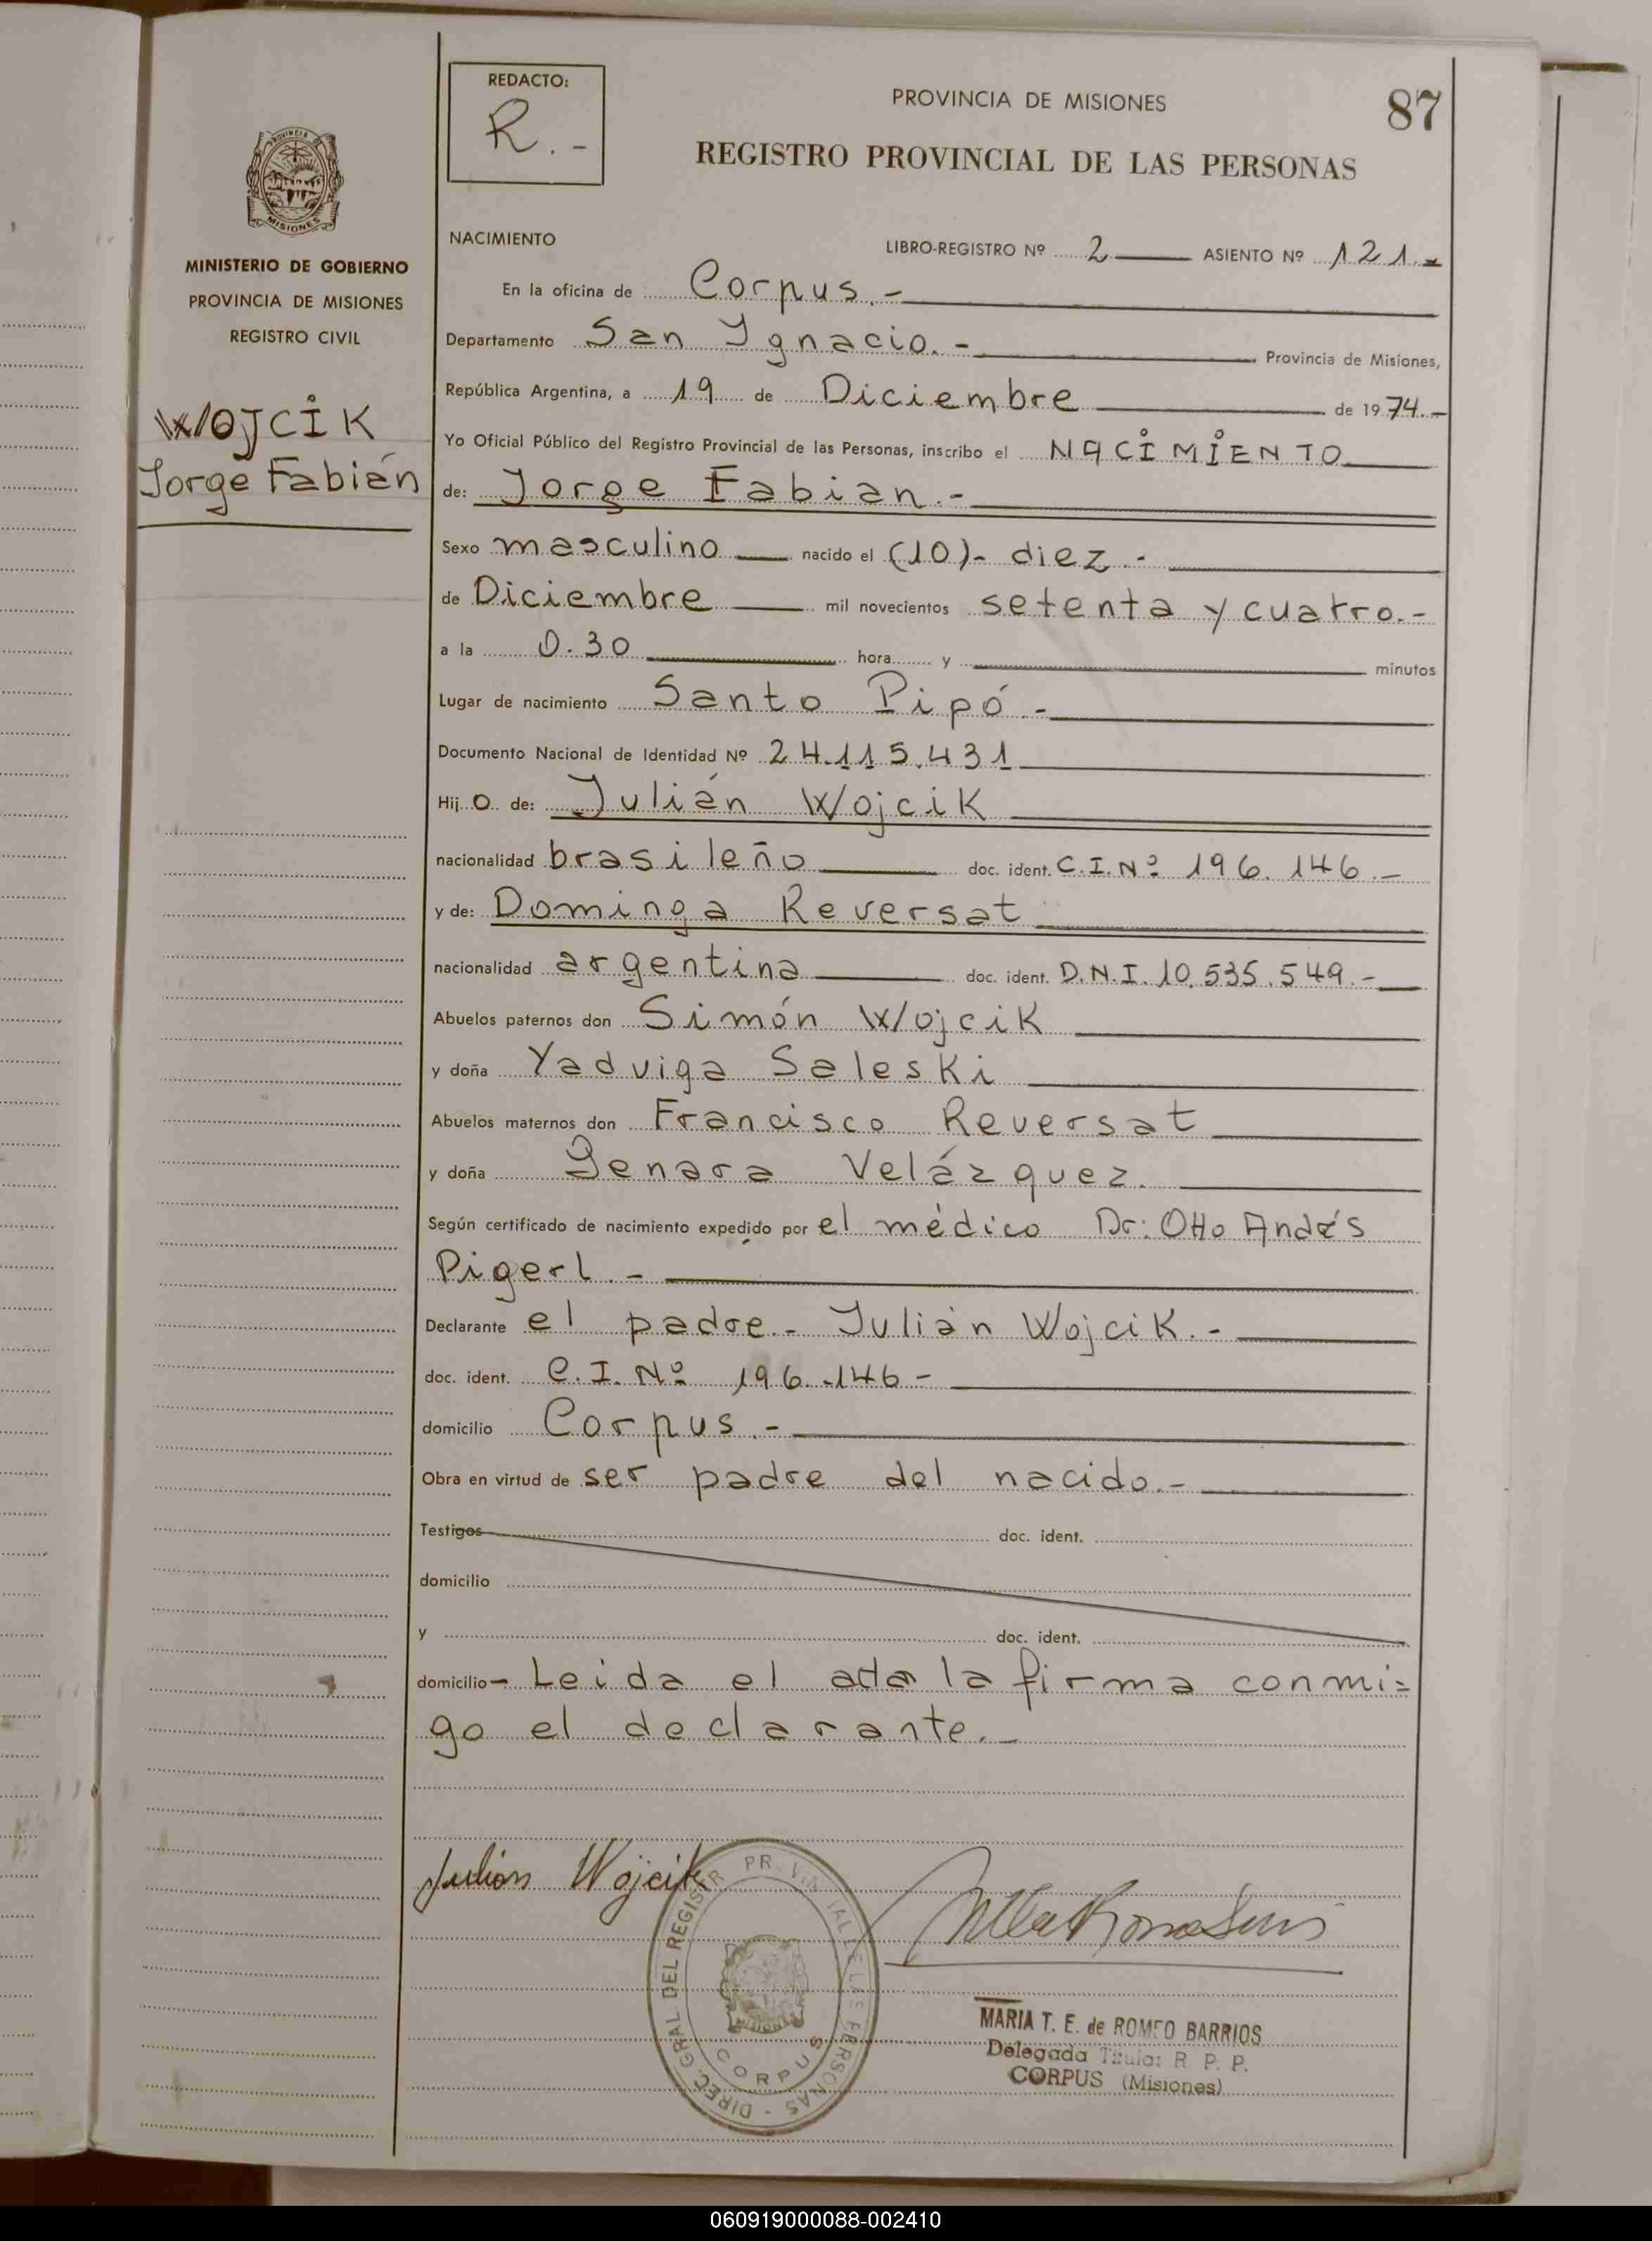 REDACTO:
R.-
PROVINCIA DE MISIONES
87
REGISTRO PROVINCIAL DE LAS PERSONAS
PROVINCIA
MISIONES
MINISTERIO DE GOBIERNO
PROVINCIA DE MISIONES
REGISTRO CIVIL
WOJCIK
Jorge Fabián
NACIMIENTO
LIBRO-REGISTRO Nº 2 ASIENTO Nº 121.-
En la oficina de Corpus.-
Departamento San Ygnacio.- Provincia de Misiones,
República Argentina, a 19 de Diciembre de 1974.-
Yo Oficial Público del Registro Provincial de las Personas, inscribo el NACIMIENTO
de: Jorge Fabian.-
Sexo masculino nacido el (10)- diez.-
de Diciembre mil novecientos setenta y cuatro.-
a la 0.30 hora y minutos
Lugar de nacimiento Santo Pipó.-
Documento Nacional de Identidad Nº 24.115.431
Hijo de: Julián Wojcik
nacionalidad brasileño doc. ident. C.I.Nº 196.146.-
y de: Dominga Reversat
nacionalidad argentina doc. ident. D.N.I. 10.535.549.-
Abuelos paternos don Simón Wojcik
y doña Yadviga Saleski
Abuelos maternos don Francisco Reversat
y doña Genara Velázquez.
Según certificado de nacimiento expedido por el médico Dr: Otto Andrés
Pigerl.-
Declarante el padre.- Julián Wojcik.-
doc. ident. C.I.Nº 196.146-
domicilio Corpus.-
Obra en virtud de ser padre del nacido.-
Testigos doc. ident.
domicilio
y doc. ident.
domicilio- Leida el acta la firma conmi=
go el declarante.-
Julián Wojcik
DIREC. GRAL DEL REGISTR PROVINCIAL DE LAS PERSONAS -
CORPUS
MARIA T. E. de ROMEO BARRIOS
Delegada Titular R. P. P.
CORPUS (Misiones)
060919000088-002410